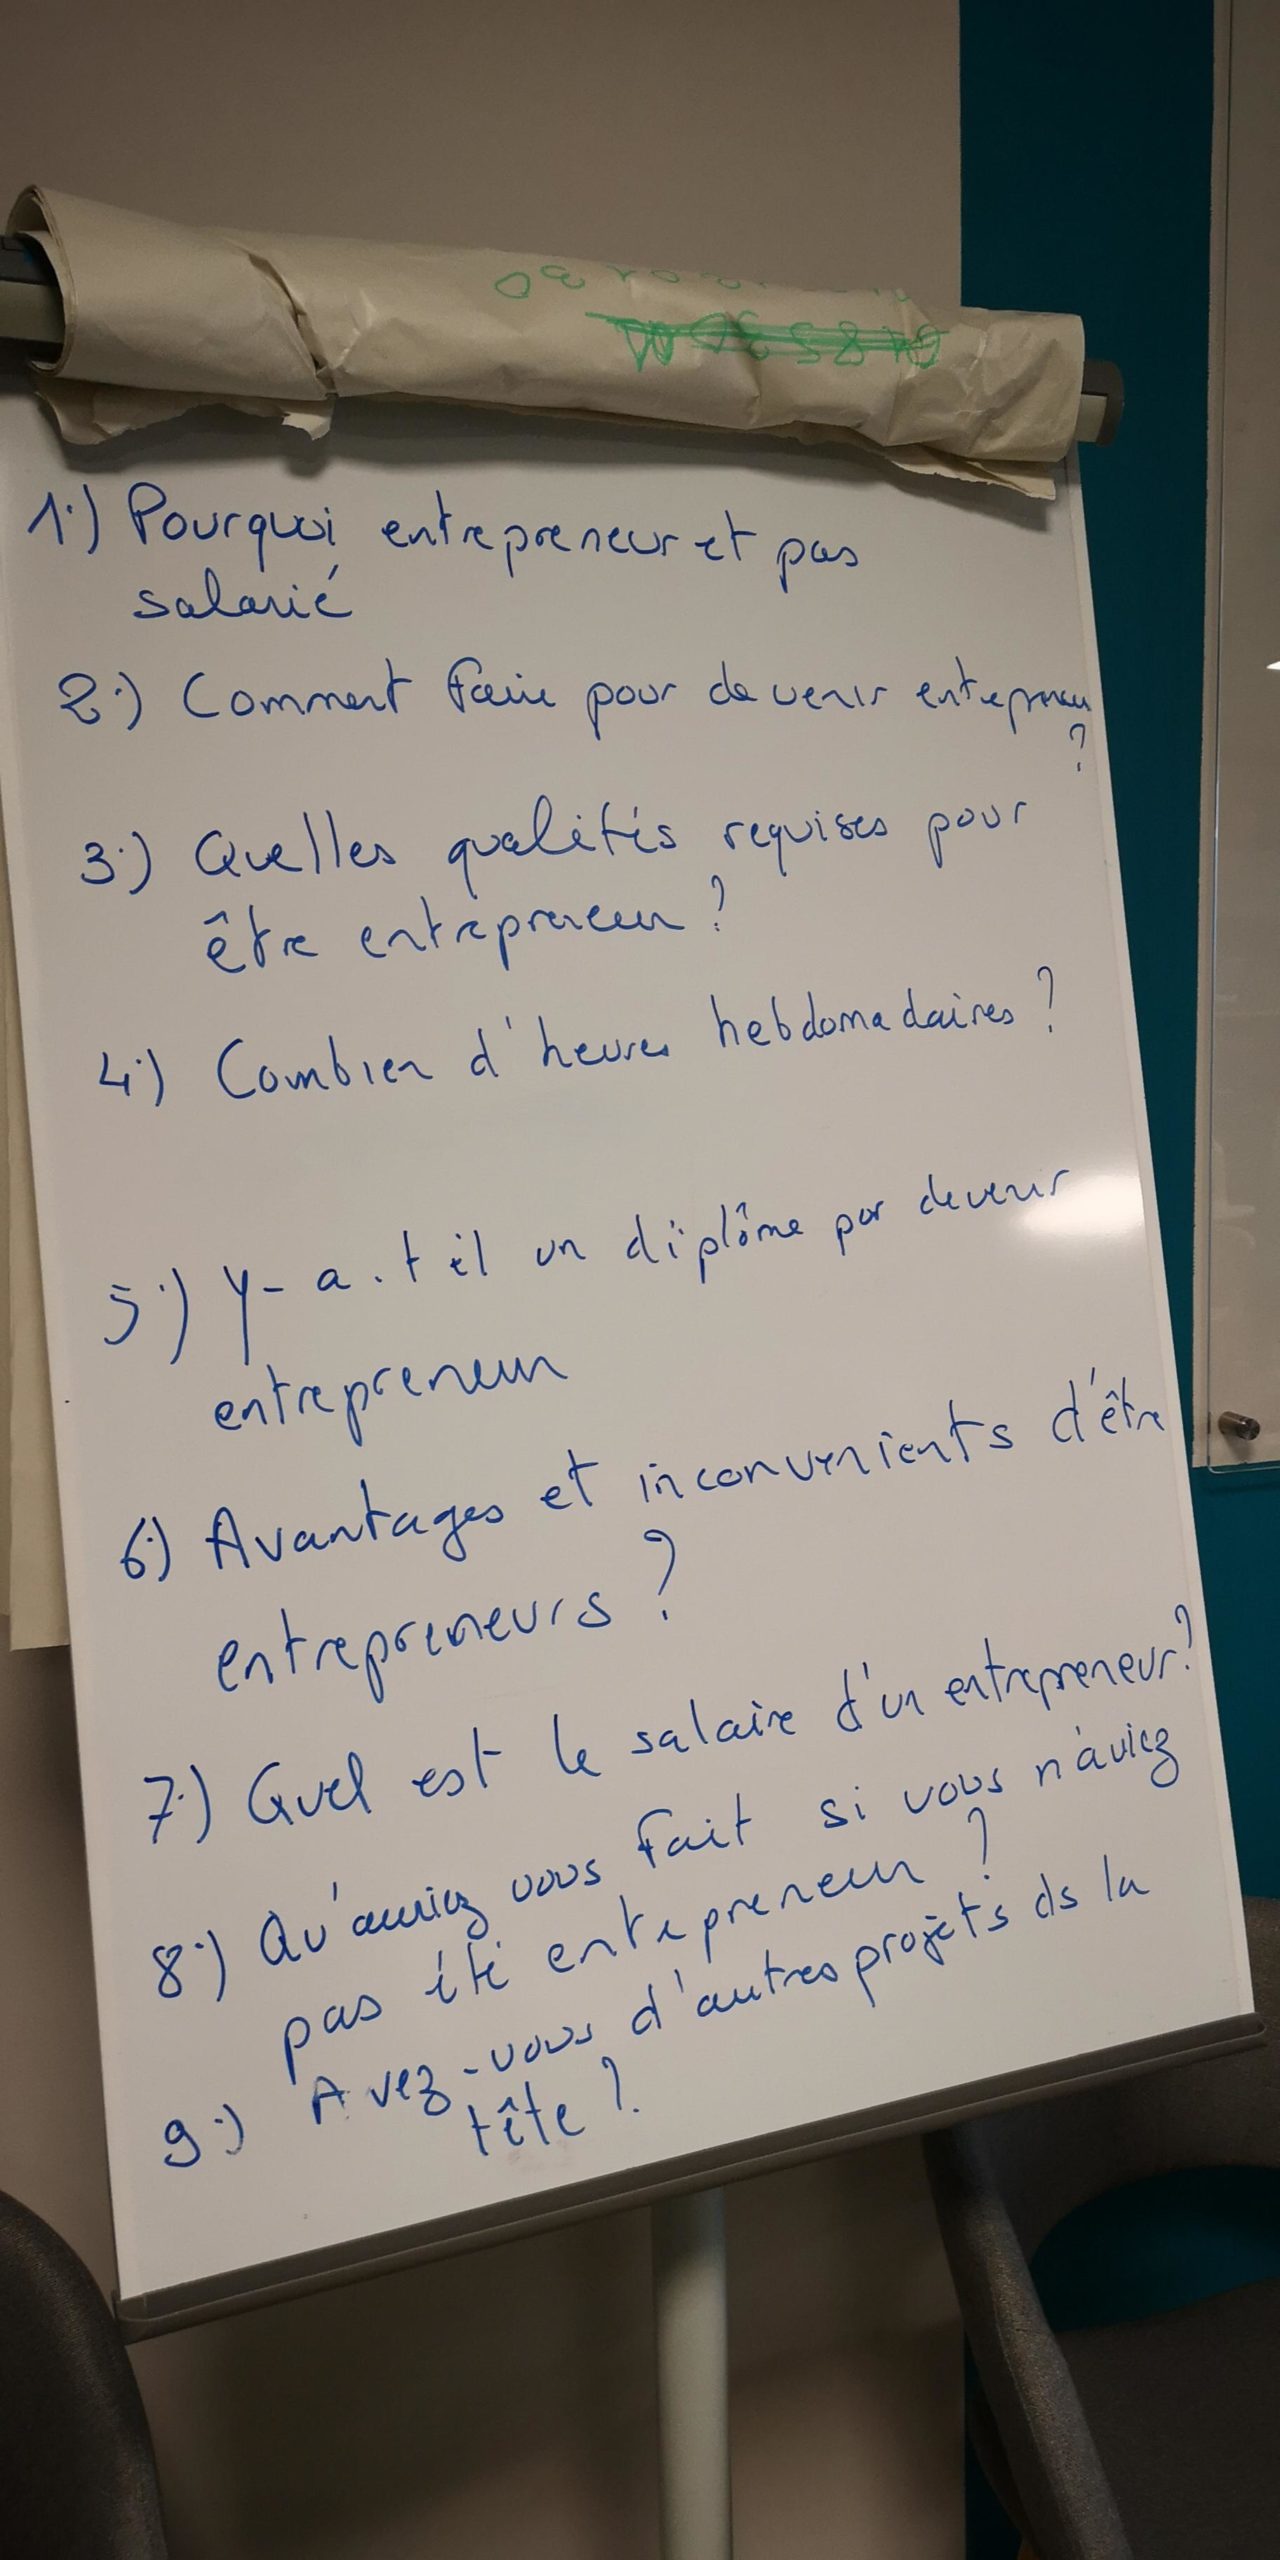 1.) Pourquoi entrepreneur et pas
salarié
2.) Comment faire pour devenir entrepreneur
?
3.) Quelles qualités requises pour
être entrepreneur ?
4.) Combien d'heures hebdomadaires ?
5.) Y-a.t il un diplôme por devenir
entrepreneur
6.) Avantages et inconvenients d'être
entrepreneurs ?
7.) Quel est le salaire d'un entrepreneur ?
8.) Qu'auriez vous fait si vous n'aviez
pas été entrepreneur ?
9.) Avez-vous d'autres projets ds la
tête ?